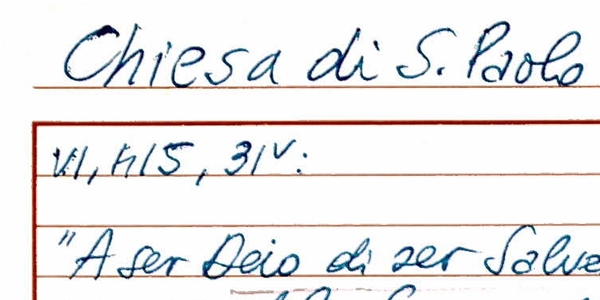 Chiesa di S. Paolo
VI, 415, 31v:
"A ser Deio di ser Salve